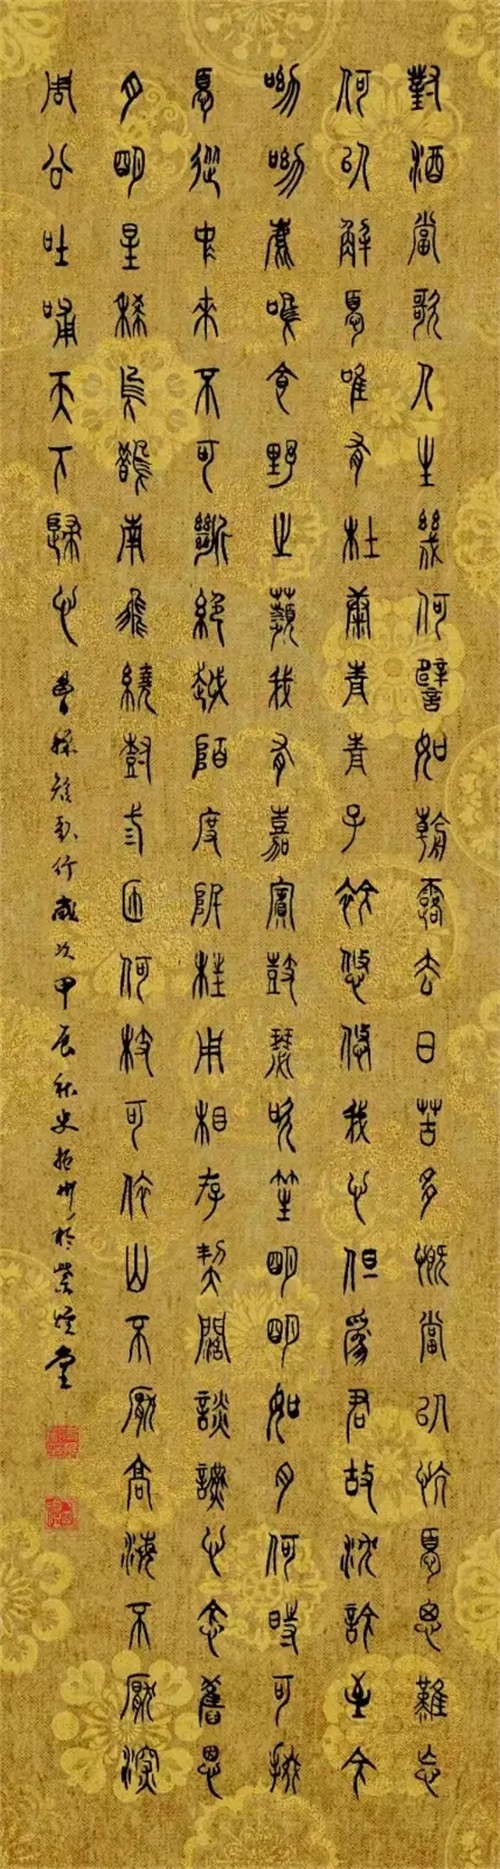 對酒當歌人生幾何譬如朝露去日苦多慨當以忼憂思難忘
何以解憂唯有杜康青青子衿悠悠我心但為君故沈吟至今
呦呦鹿鳴食野之苹我有嘉賓鼓瑟吹笙明明如月何時可掇
憂從中來不可斷絕越陌度阡枉用相存契闊談讌心念舊恩
月明星稀烏鵲南飛繞樹三匝何枝可依山不厭高海不厭深
周公吐哺天下歸心曹操短歌行歲次甲辰秋史州於紫堂